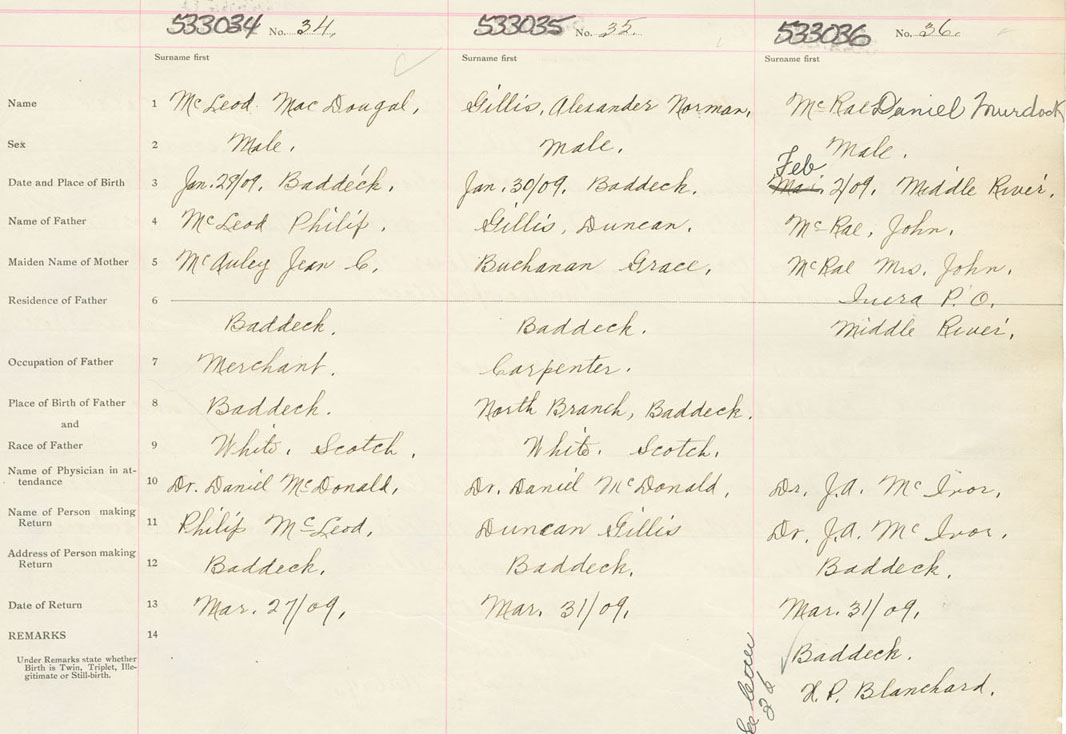 533034 No. 34. 533035 No. 35. 533036 No. 36.
Surname first Surname first Surname first
Name 1 McLeod. MacDougal, Gillis, Alexander Norman, McRae Daniel Murdock
Sex 2 Male. Male. Male.
Feb
Date and Place of Birth 3 Jan. 29/09. Baddeck. Jan. 30/09. Baddeck. 2/09. Middle River.
Name of Father 4 McLeod Philip. Gillis, Duncan. McRae, John.
Maiden Name of Mother 5 McAuley Jean C. Buchanan Grace. McRae Mrs. John.
Residence of Father 6 P. O.
Baddeck. Baddeck. Middle River.
Occupation of Father 7 Merchant. Carpenter.
Place of Birth of Father 8 Baddeck. North Branch, Baddeck.
and
Race of Father 9 White. Scotch. White. Scotch.
Name of Physician in at-
tendance 10 Dr. Daniel McDonald, Dr. Daniel McDonald, Dr. J.A. McIvor,
Name of Person making
Return 11 Philip McLeod, Duncan Gillis Dr. J.A. McIvor,
Address of Person making
Return 12 Baddeck. Baddeck. Baddeck.
Date of Return 13 Mar. 27/09. Mar. 31/09. Mar. 31/09.
REMARKS 14
Under Remarks state whether
Birth is Twin, Triplet, Ille-
gitimate or Still-birth.
Baddeck.
Blanchard.